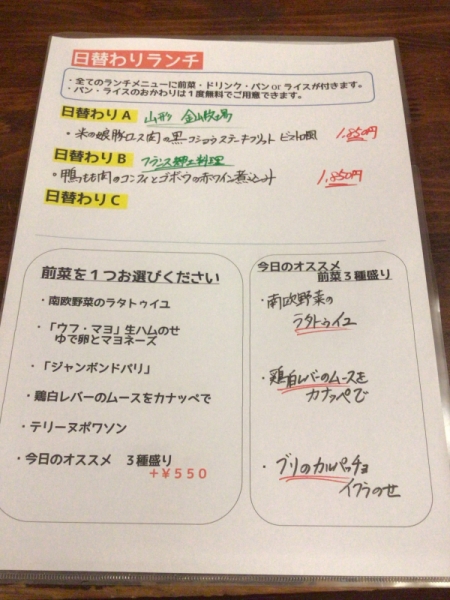 日替わりランチ
・全てのランチメニューに前菜・ドリンク・パンorライスが付きます。
・パン・ライスのおかわりは1度無料でご用意できます。
日替わりA 山形 金山牧場
・米の娘豚ロース肉の黒コショウステーキフリット ビストロ風
日替わりB フランス郷土料理
・鴨もも肉のコンフィとゴボウの赤ワイン煮込み 1,850円
日替わりC
前菜を1つお選びください
・南欧野菜のラタトゥイユ
・「ウフ・マヨ」生ハムのせ
ゆで卵とマヨネーズ
・「ジャンボンドパリ」
・鶏白レバーのムースをカナッペで
・テリーヌポワソン
・今日のオススメ 3種盛り
+¥550
今日のオススメ
前菜3種盛り
・南欧野菜の
ラタトゥイユ
・鶏白レバーのムースを
カナッペで
・ブリのカルパッチョ
イクラのせ